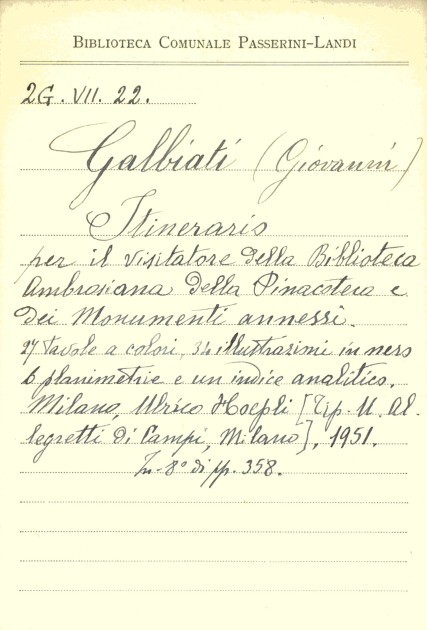 BIBLIOTECA COMUNALE PASSERINI-LANDI
2G. VII. 22.
Galbiati (Giovanni)
Itinerario
per il visitatore della Biblioteca
Ambrosiana della Pinacoteca e
dei Monumenti annessi.
27 tavole a colori, 34 illustrazioni in nero
6 planimetrie e un indice analitico.
Milano, Ulrico Hoepli [Tip. U. Al-
legretti di Campi, Milano], 1951.
In-8° di pp. 358.